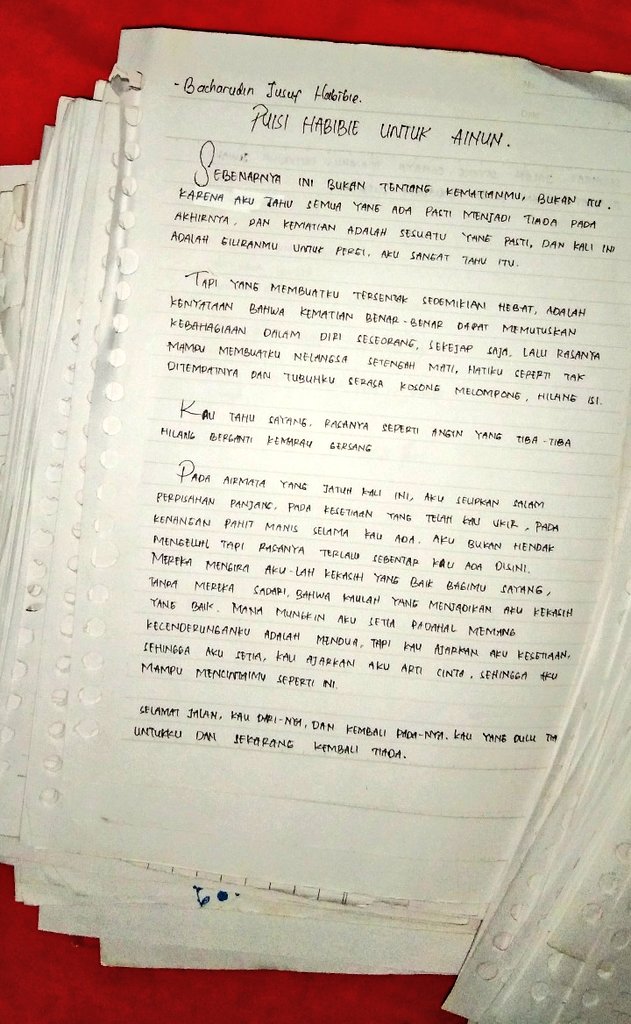 - Bacharudin Jusuf Habibie.
PUISI HABIBIE UNTUK AINUN.
SEBENARNYA INI BUKAN TENTANG KEMATIANMU, BUKAN ITU.
KARENA AKU TAHU SEMUA YANG ADA PASTI MENJADI TIADA PADA
AKHIRNYA, DAN KEMATIAN ADALAH SESUATU YANG PASTI, DAN KALI INI
ADALAH GILIRANMU UNTUK PERGI, AKU SANGAT TAHU ITU.
TAPI YANG MEMBUATKU TERSENTAK SEDEMIKIAN HEBAT, ADALAH
KENYATAAN BAHWA KEMATIAN BENAR-BENAR DAPAT MEMUTUSKAN
KEBAHAGIAAN DALAM DIRI SESEORANG, SEKEJAP SAJA, LALU RASANYA
MAMPU MEMBUATKU NELANGSA SETENGAH MATI, HATIKU SEPERTI TAK
DITEMPATNYA DAN TUBUHKU SERASA KOSONG MELOMPONG, HILANG ISI.
KAU TAHU SAYANG, RASANYA SEPERTI ANGIN YANG TIBA-TIBA
HILANG BERGANTI KEMARAU GERSANG
PADA AIRMATA YANG JATUH KALI INI, AKU SELIPKAN SALAM
PERPISAHAN PANJANG, PADA KESETIAAN YANG TELAH KAU UKIR, PADA
KENANGAN PAHIT MANIS SELAMA KAU ADA. AKU BUKAN HENDAK
MENGELUH, TAPI RASANYA TERLALU SEBENTAR KAU ADA DISINI.
MEREKA MENGIRA AKU-LAH KEKASIH YANG BAIK BAGIMU SAYANG,
TANPA MEREKA SADARI, BAHWA KAULAH YANG MENJADIKAN AKU KEKASIH
YANG BAIK. MANA MUNGKIN AKU SETIA PADAHAL MEMANG
KECENDERUNGANKU ADALAH MENDUA, TAPI KAU AJARKAN AKU KESETIAAN,
SEHINGGA AKU SETIA, KAU AJARKAN AKU ARTI CINTA, SEHINGGA AKU
MAMPU MENCINTAIMU SEPERTI INI.
SELAMAT JALAN, KAU DARI-NYA, DAN KEMBALI PADA-NYA. KAU YANG DULU TIA
UNTUKKU DAN SEKARANG KEMBALI TIADA.